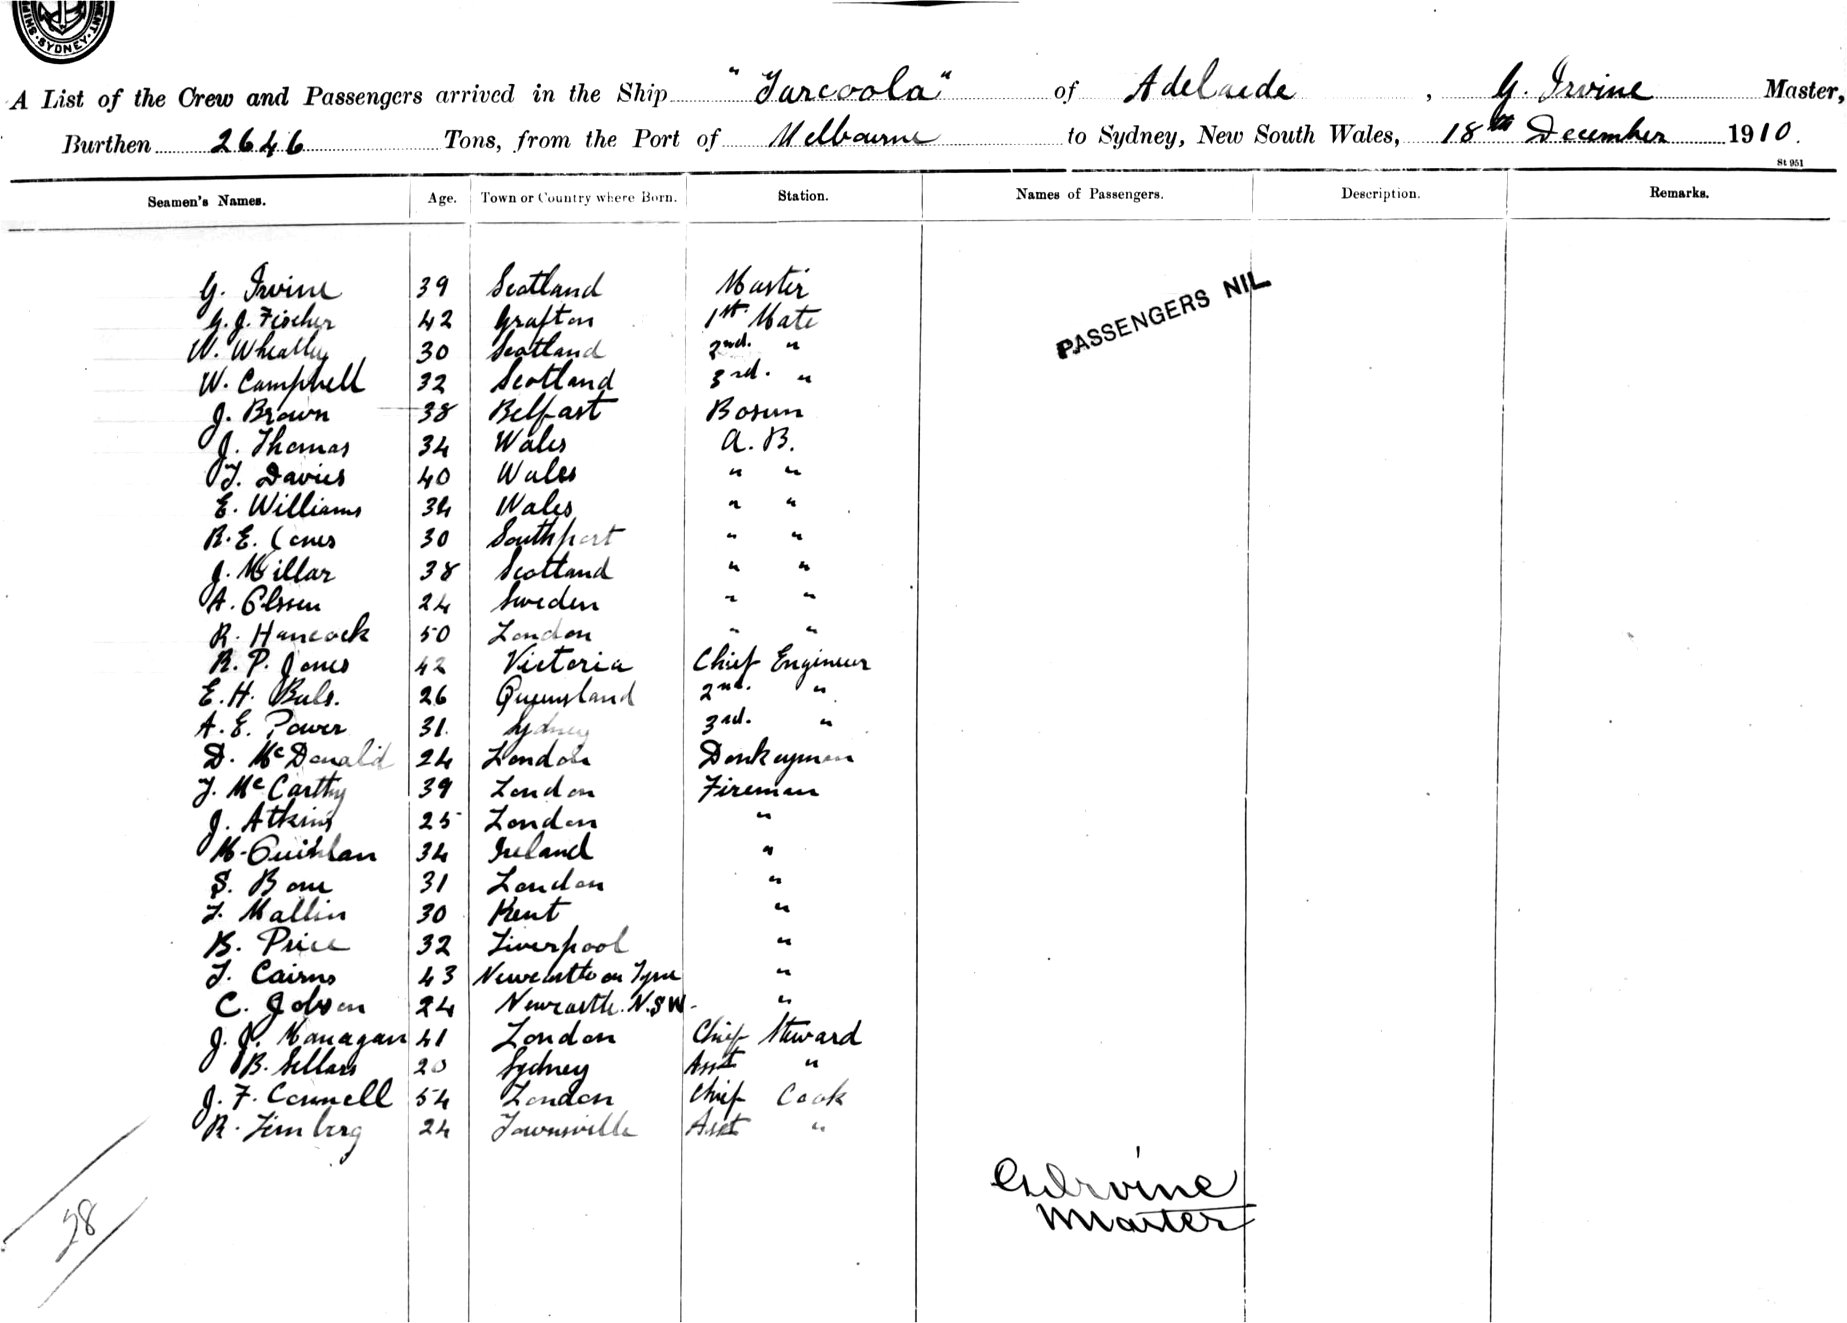 SYDNEY
A List of the Crew and Passengers arrived in the Ship "Tarcoola" of Adelaide, G. Irvine Master,
Burthen 2646 Tons, from the Port of Melbourne to Sydney, New South Wales, 18th December 1910.
St 951
Seamen's Names. Age. Town or Country where Born. Station. Names of Passengers. Description. Remarks.
G. Irvine 39 Scotland Master
PASSENGERS NIL
G. J. Fischer 42 Grafton 1st Mate
W. Wheatley 30 Scotland 2nd. "
W. Campbell 32 Scotland 3rd. "
J. Brown 38 Belfast Bosun
J. Thomas 34 Wales A. B.
T. Davies 40 Wales " "
E. Williams 34 Wales " "
R. E. Jones 30 Southport " "
J. Millar 38 Scotland " "
A. Olssen 24 Sweden " "
R. Hancock 50 London " "
R. P. Jones 42 Victoria Chief Engineer
E. H. 26 Queensland 2nd. "
A. E. Power 31. Sydney 3rd. "
D. McDonald 24 London Donkeyman
J. McCarthy 39 London Fireman
J. Atkins 25 London "
M. 34 Ireland "
S. 31 London "
T. Mallin 30 Kent "
B. Price 32 Liverpool "
T. Cairns 43 Newcastle on Tyne "
C. Jobson 24 Newcastle. N.S.W. "
J. Managan 41 London Chief Steward
B. Sellars 20 Sydney Asst "
J. F. Connell 54 London Chief Cook
R. 24 Townsville Asst "
G Irvine
Master
28